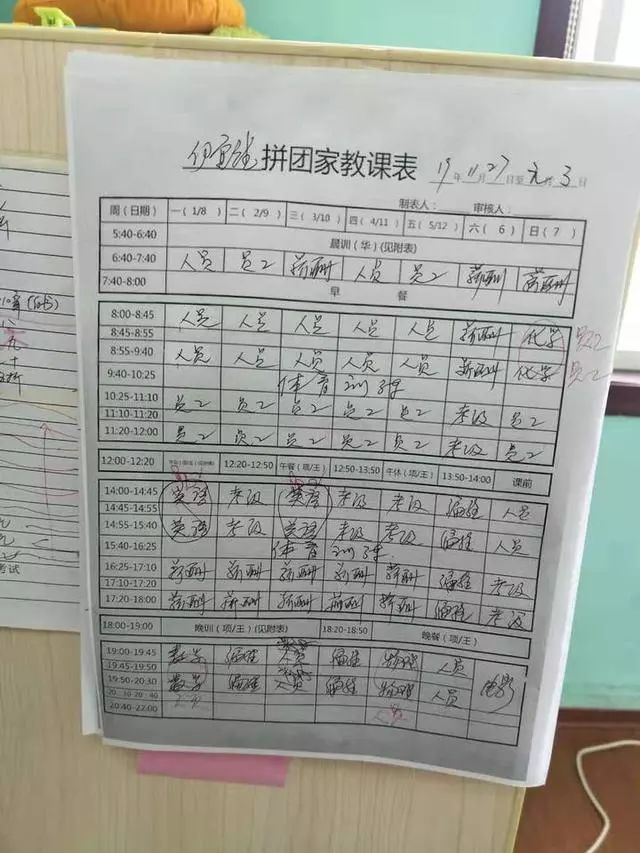 拼团家教课表 19年11月27日至元月3日
制表人： 审核人：
周（日期） 一（1/8） 二（2/9） 三（3/10） 四（4/11） 五（5/12） 六（6） 日（7）
5:40-6:40 晨训（华）（见附表）
6:40-7:40 人员 员工 薪酬 人员 员工 薪酬 薪酬
7:40-8:00 早餐
8:00-8:45 人员 人员 人员 人员 人员 薪酬 化学 员工
8:45-8:55
8:55-9:40 人员 人员 人员 人员 人员 薪酬 化学 员工
9:40-10:25 体育训练
10:25-11:10 员工 员工 员工 员工 员工 考级 员工
11:10-11:20
11:20-12:00 员工 员工 员工 员工 员工 考级 员工
12:00-12:20 12:20-12:50 午餐（项/王） 12:50-13:50 午休（项/王） 13:50-14:00 课前
14:00-14:45 英语 考级 英语 考级 考级 编程 人员
14:45-14:55
14:55-15:40 英语 考级 英语 考级 考级 编程 人员
15:40-16:25 体育训练
16:25-17:10 薪酬 薪酬 薪酬 薪酬 薪酬 编程 考级
17:10-17:20
17:20-18:00 薪酬 薪酬 薪酬 薪酬 薪酬 编程 考级
18:00-19:00 晚训（项/王）（见附表） 18:20-18:50 晚餐（项/王）
19:00-19:45 数学 编程 人员 编程 物理 人员 电影
19:45-19:50
19:50-20:30 数学 编程 人员 编程 物理 人员
20:30-20:40
20:40-22:00
考试